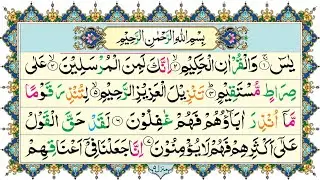 بِسْمِ اللّٰهِ الرَّحْمٰنِ الرَّحِيْمِ
يٰسٓ ۚ﴿۱﴾ وَالْقُرْاٰنِ الْحَكِيْمِ ۙ﴿۲﴾ اِنَّكَ لَمِنَ الْمُرْسَلِيْنَ ۙ﴿۳﴾ عَلٰى
صِرَاطٍ مُّسْتَقِيْمٍ ؕ﴿۴﴾ تَنْزِيْلَ الْعَزِيْزِ الرَّحِيْمِ ۙ﴿۵﴾ لِتُنْذِرَ قَوْمًا
مَّاۤ اُنْذِرَ اٰبَآؤُهُمْ فَهُمْ غٰفِلُوْنَ ﴿۶﴾ لَقَدْ حَقَّ الْقَوْلُ
عَلٰۤى اَكْثَرِهِمْ فَهُمْ لَا يُؤْمِنُوْنَ ﴿۷﴾ اِنَّا جَعَلْنَا فِىْۤ اَعْنَاقِهِمْ